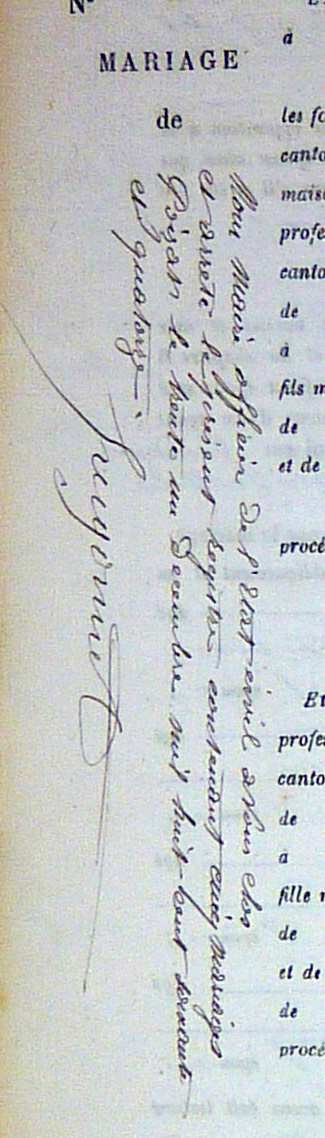 N°
MARIAGE
de
Nous Maire officier de l'Etat civil avons clos
et arreté le present registre contenant cinq mariages
le trente un Decembre mil huit cent soixante
et quatorze.
a
les fo
canto
mais
profe
canto
de
à
fils m
de
et de
procé
Et
profe
canto
de
à
fille m
de
et de
de
procé